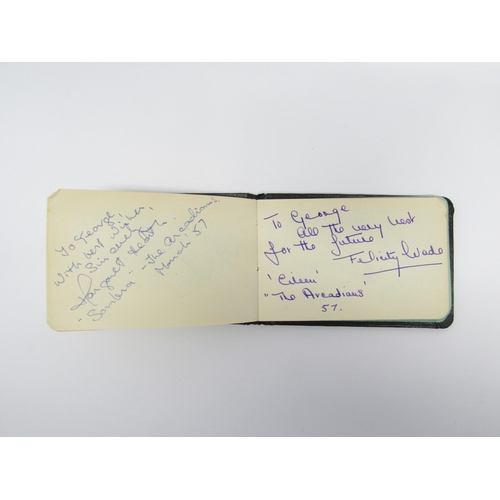 To George,
With best wishes,
Sincerely
Margaret
"Sombra" - "The Arcadians"
March '57
To George
All the very best
for the future
Felicity Wade
'Eileen'
"The Arcadians'
57.